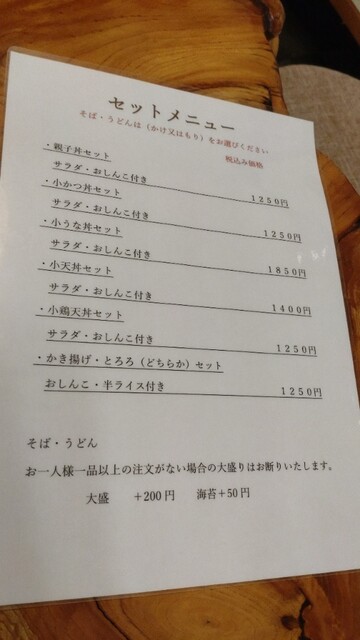 セットメニュー
そば・うどんは（かけ又はもり）をお選びください
税込み価格
・親子丼セット
サラダ・おしんこ付き 1250円
・小かつ丼セット
サラダ・おしんこ付き 1250円
・小うな丼セット
サラダ・おしんこ付き 1850円
・小天丼セット
サラダ・おしんこ付き 1400円
・小鶏天丼セット
サラダ・おしんこ付き 1250円
・かき揚げ・とろろ（どちらか）セット
おしんこ・半ライス付き 1250円
そば・うどん
お一人様一品以上の注文がない場合の大盛りはお断りいたします。
大盛 +200円 海苔+50円